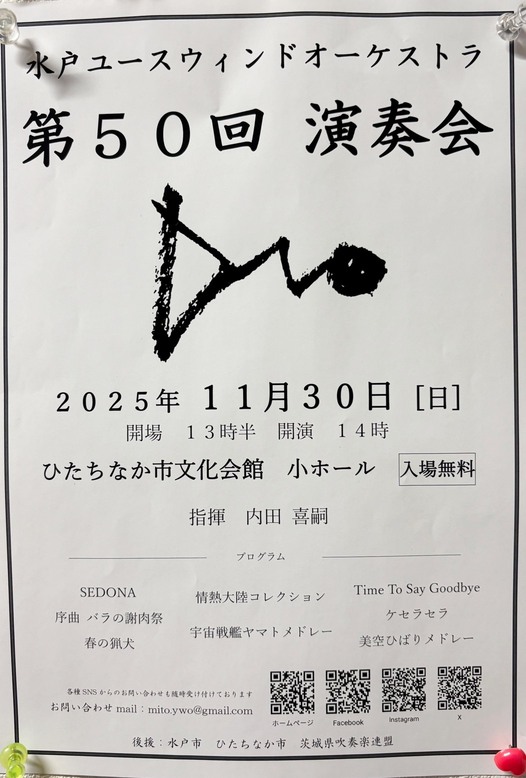 水戸ユースウィンドオーケストラ
第５０回 演奏会
２０２５年 １１月３０日 [日]
開場 １３時半 開演 １４時
ひたちなか市文化会館 小ホール 入場無料
指揮 内田 喜嗣
プログラム
SEDONA
序曲 バラの謝肉祭
春の猟犬
情熱大陸コレクション
宇宙戦艦ヤマトメドレー
Time To Say Goodbye
ケセラセラ
美空ひばりメドレー
各種SNSからのお問い合わせも随時受け付けております
お問い合わせ mail：mito.ywo@gmail.com
ホームページ Facebook Instagram X
後援：水戸市 ひたちなか市 茨城県吹奏楽連盟